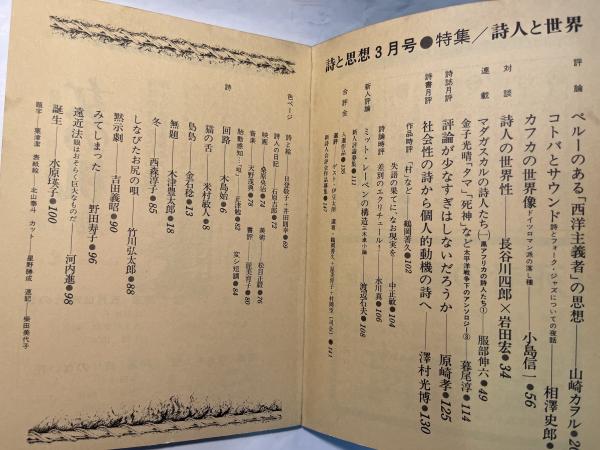 詩と思想3月号●特集/詩人と世界
評論
ペルーのある「西洋主義者」の思想――山崎カヲル●
コトバとサウンド 詩とフォーク・ジャズについての夜話――相澤史郎●
カフカの世界像 ドイツロマン派の落し種――小島信一●56
対談
詩人の世界性――長谷川四郎×岩田宏●34
連載
マダガスカルの詩人たち(一) 黒アフリカの詩人たち①――服部伸六●49
金子光晴「タマ」「死神」など 太平洋戦争下のアンソロジー③――暮尾淳●114
詩誌月評
評論が少なすぎはしないだろうか――原崎孝●125
詩書月評
社会性の詩から個人的動機の詩へ――澤村光博●130
作品時評
「村」など――鶴岡善久●102
詩論時評
失語の果てに、なお現実を――中正敏●104
差別のエクリチュール――水川真●106
新人評論
ミッド・レーベンの構造――渡辺石夫●108
新人評論募集●113
合評会
入選作品●135
色ページ
詩と絵――日登敬子+芥田昭幸●69
詩人の日記――石原吉郎●72
映画――桑原兌治●74
美術――松田正毅●76
音楽――天野茂典●78
書評
詩
回路――木島始●6
猫の舌――米村敏人●8
島島――金石稔●13
無題――木津豊太郎●18
冬――西森淳子●85
しなびたお尻の唄――竹川弘太郎●88
黙示劇――吉田義昭●90
みてしまった――野田寿子●96
遠近法 眼はおそらく巨大なものだ――河内進●98
誕生――水原瑛子●100
題字――粟津潔 表紙絵――北山泰斗 カット――星野勝成 速記――柴田美代子